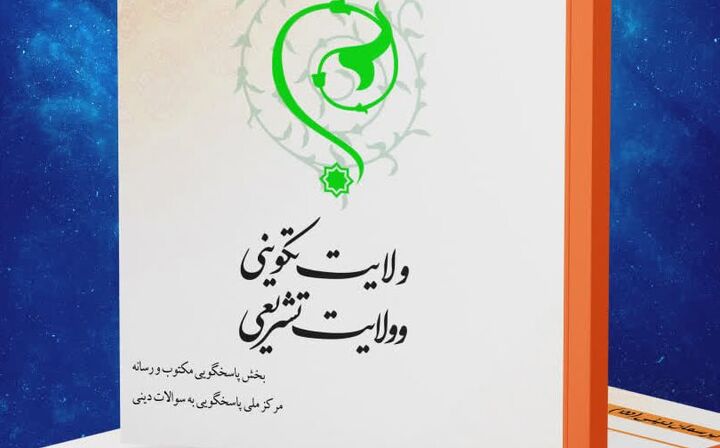 ولایت تکوینی
و ولایت تشریعی
بخش پاسخگویی مکتوب و رسانه
مرکز ملی پاسخگویی به سوالات دینی